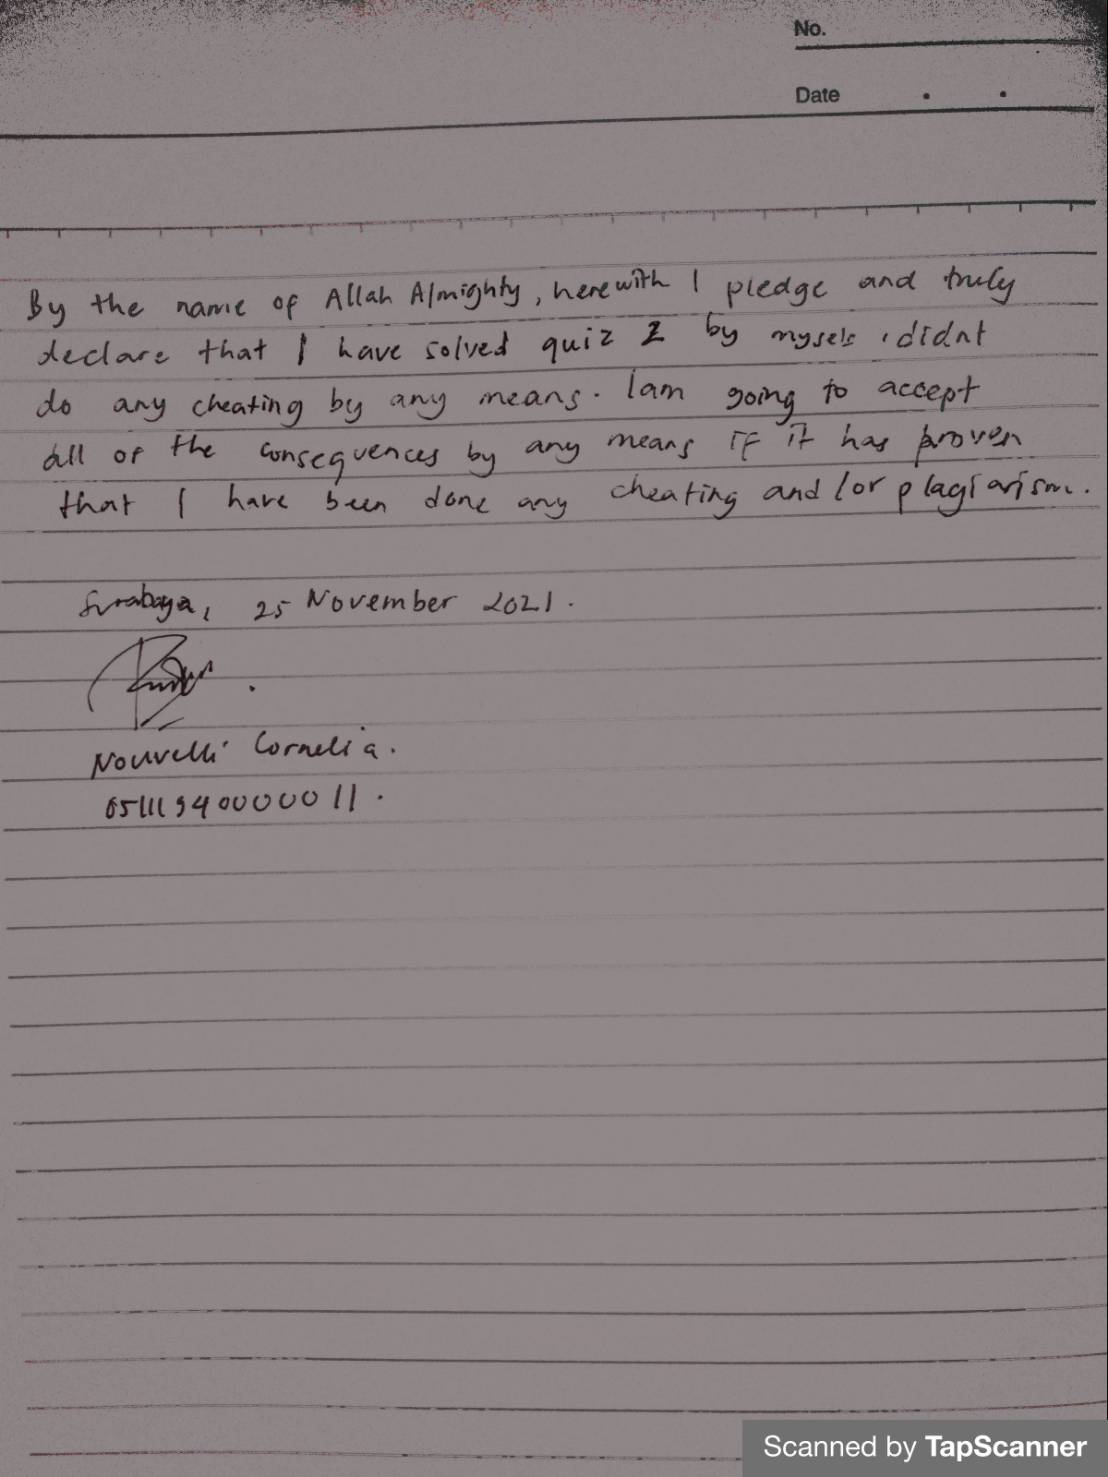 No.
Date . .
By the name of Allah Almighty, herewith I pledge and truly
declare that I have solved quiz 2 by myself, didnt
do any cheating by any means. Iam going to accept
all of the consequences by any means if it has proven
that I have been done any cheating and/or plagiarism.
Surabaya, 25 November 2021.
Nouvelli Cornelia.
05111940000011.
Scanned by TapScanner